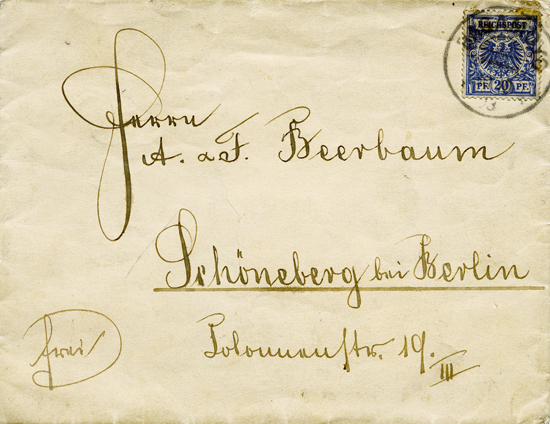 REICHSPOST
PF. 20 PF.
Herrn
A. & F. Beerbaum
Schöneberg bei Berlin
Colonnenstr. 19.
III
frei